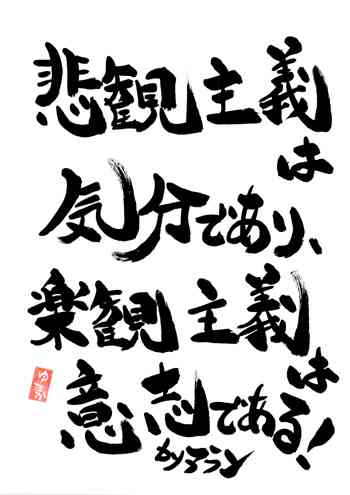 悲観主義
は
気分であり、
楽観主義
は
意志である!
by アラン